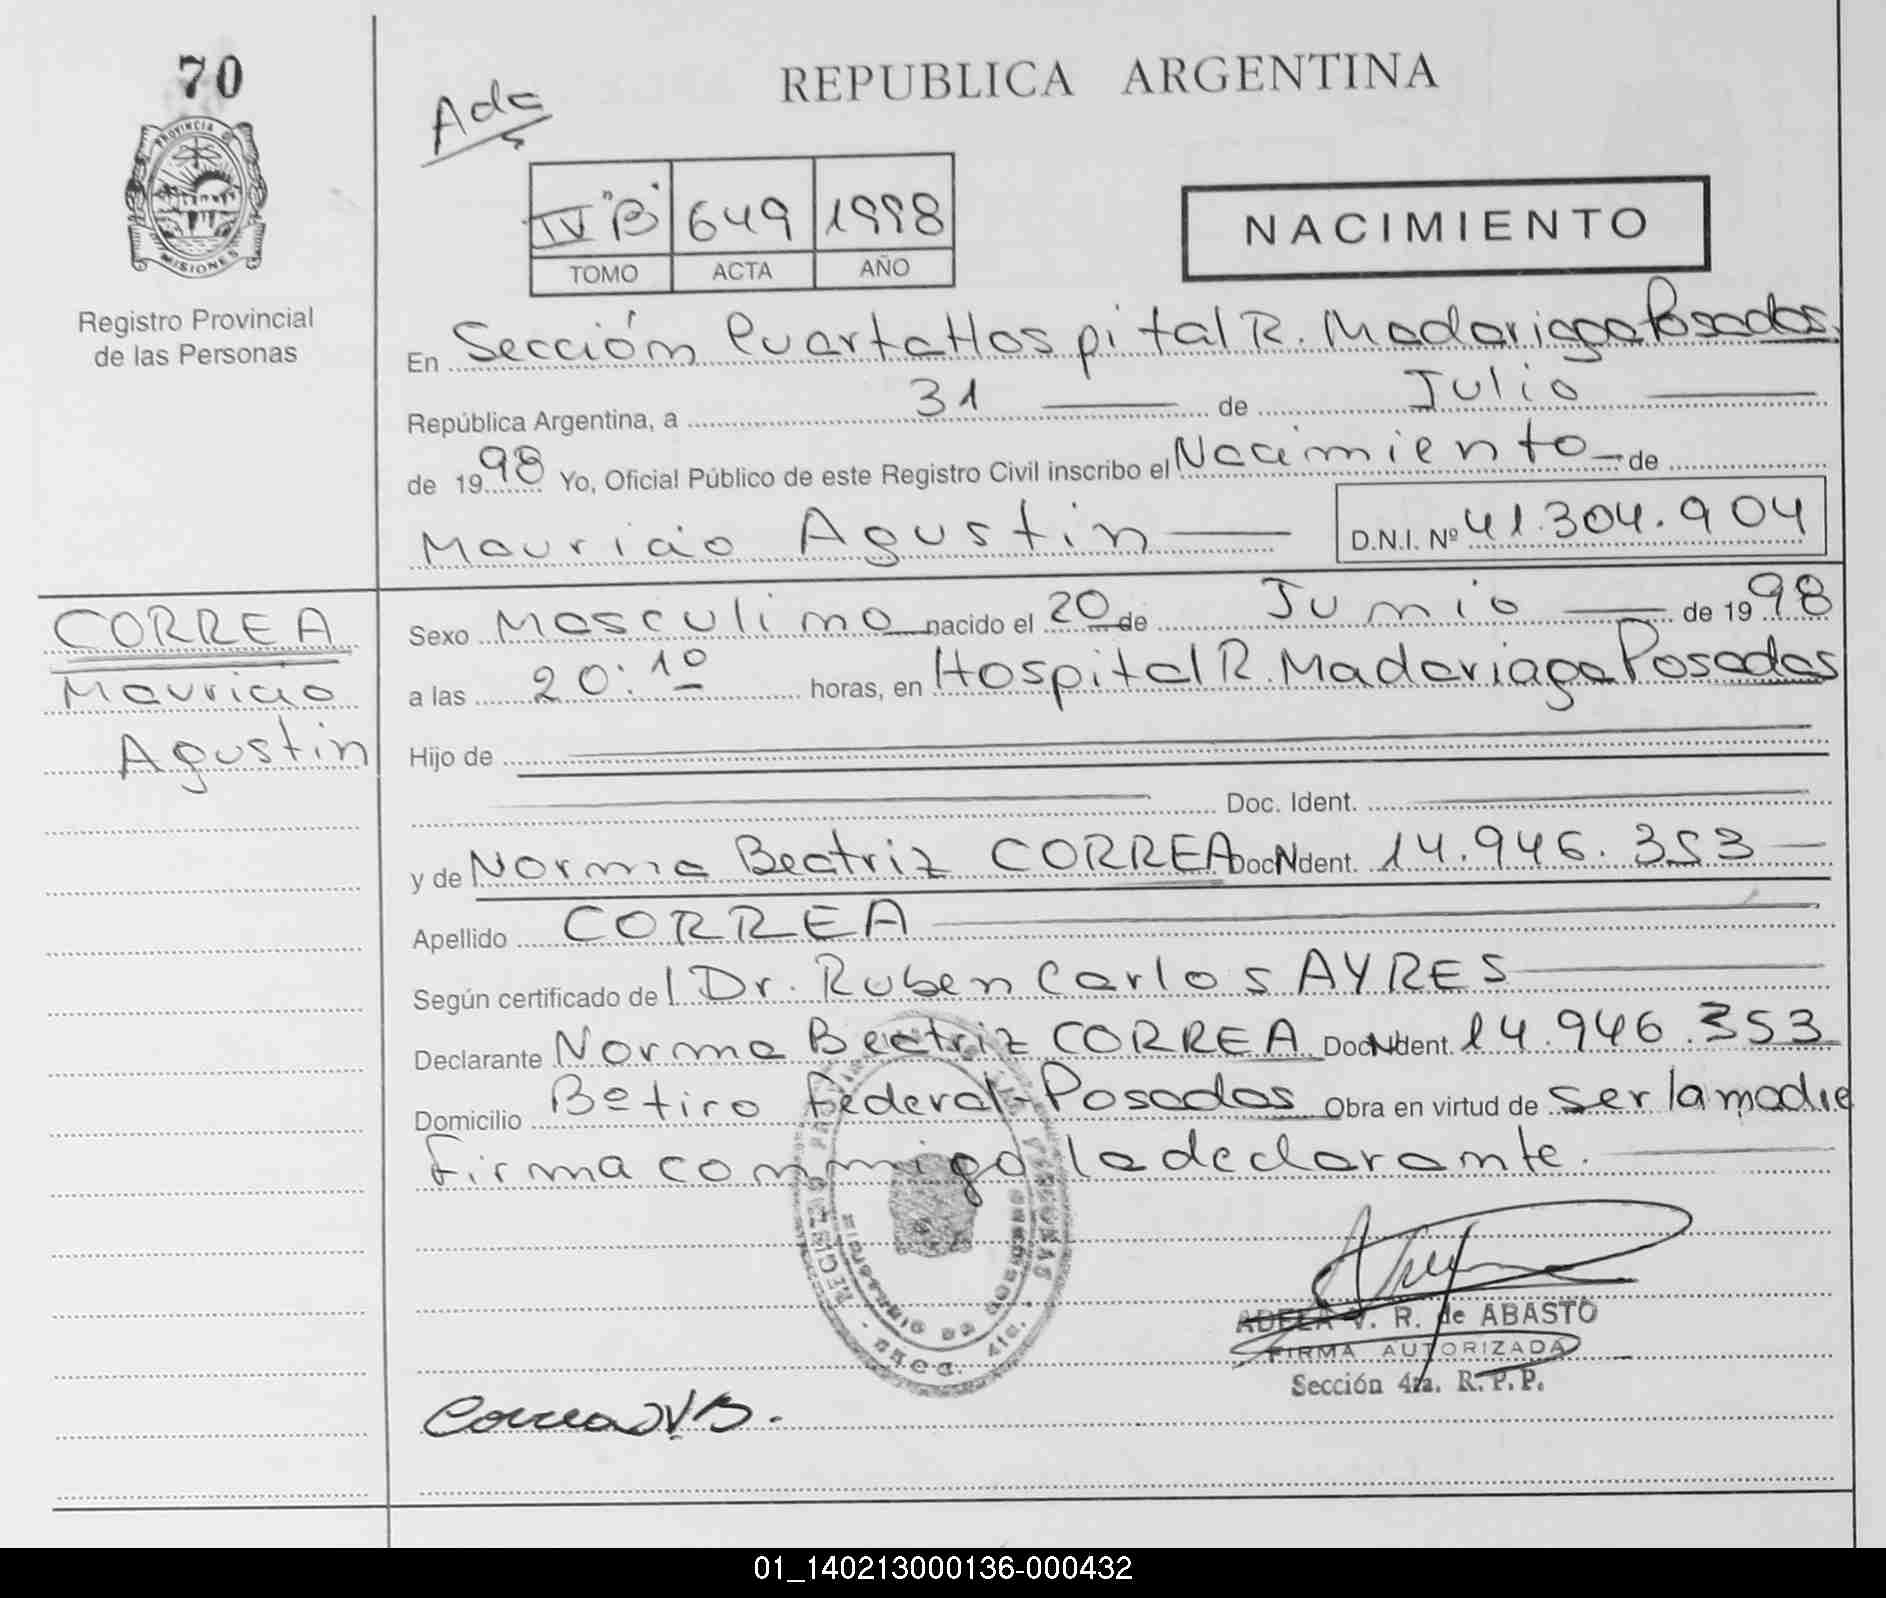 70
REPUBLICA ARGENTINA
PROVINCIA DE
MISIONES
Registro Provincial
de las Personas
IV "B" 649 1998
TOMO ACTA AÑO
NACIMIENTO
En Sección Cuarta Hospital R. Madariaga Posadas.
República Argentina, a 31 de Julio
de 1998 Yo, Oficial Público de este Registro Civil inscribo el Nacimiento de
Mauricio Agustin D.N.I. Nº 41.304.904
CORREA
Mauricio
Agustin
Sexo Masculino nacido el 20 de Junio de 1998
a las 20:10 horas, en Hospital R. Madariaga Posadas
Hijo de
Doc. Ident.
y de Norma Beatriz CORREA Doc. Ident. 14.946.353
Apellido CORREA
Según certificado del Dr. Ruben Carlos AYRES
Declarante Norma Beatriz CORREA Doc. Ident. 14.946.353
Domicilio Bº tiro Federal-Posadas Obra en virtud de ser la madre
Firma conmigo la declarante.
ADELA V. R. de ABASTO
FIRMA AUTORIZADA
Sección 4ta. R.P.P.
Correa N B.
01_140213000136-000432